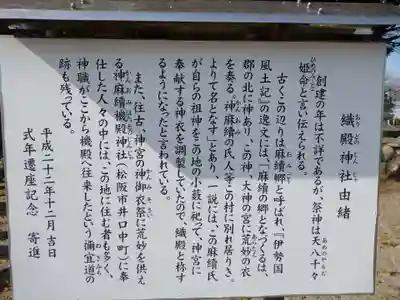 織殿神社由緒
おりどのじんじゃ
創建の年は不詳であるが、祭神は天八千々
あめのやちち
姫命と言い伝えられる。
ひめのみこと
古くこの辺りは麻績郷と呼ばれ、『伊勢国
おみごう
風土記』の逸文には、「麻績の郷となづくるは、
郡の北に神あり、この神、大神の宮に荒妙の衣
あらたえ
を奏る。神麻績の氏人等この村に別れ居りき。
よりて名となす」とあり、一説には、この麻績氏
が自らの祖神をこの地の小薮に祀って、神宮に
奉献する神衣を調製していたので、織殿と称す
るようになったと言われている。
また、往古、神宮の神御衣祭に荒妙を供え
かんみそさい
る神麻績機殿神社（松阪市井口中町）に奉
仕した人々の中には、この地に住む者も多く、
神職がここから機殿へ往来したという禰宜道の
跡も残っている。
平成二十二年十二月吉日
式年遷座記念　寄進